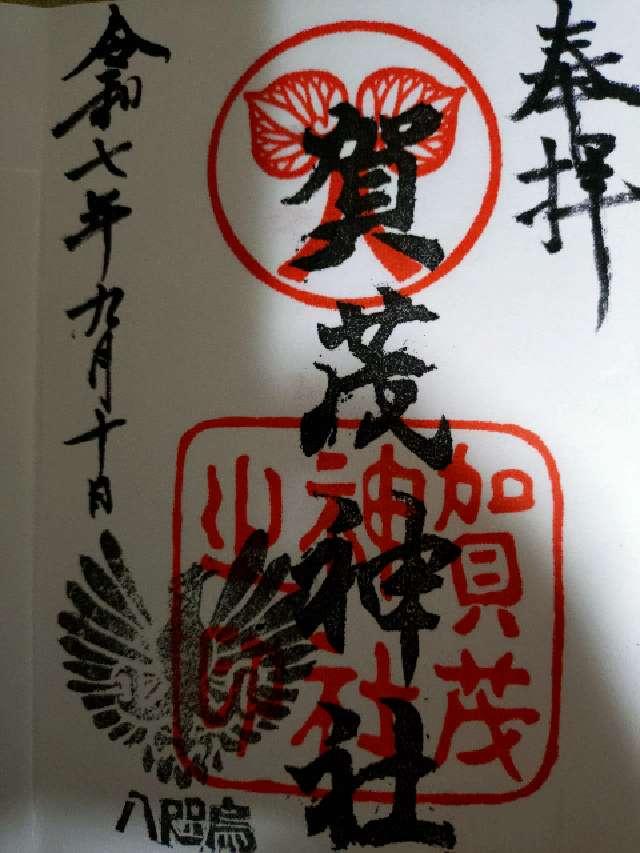 奉拝
賀茂神社
賀茂
神社
之印
令和七年九月十日
八咫烏